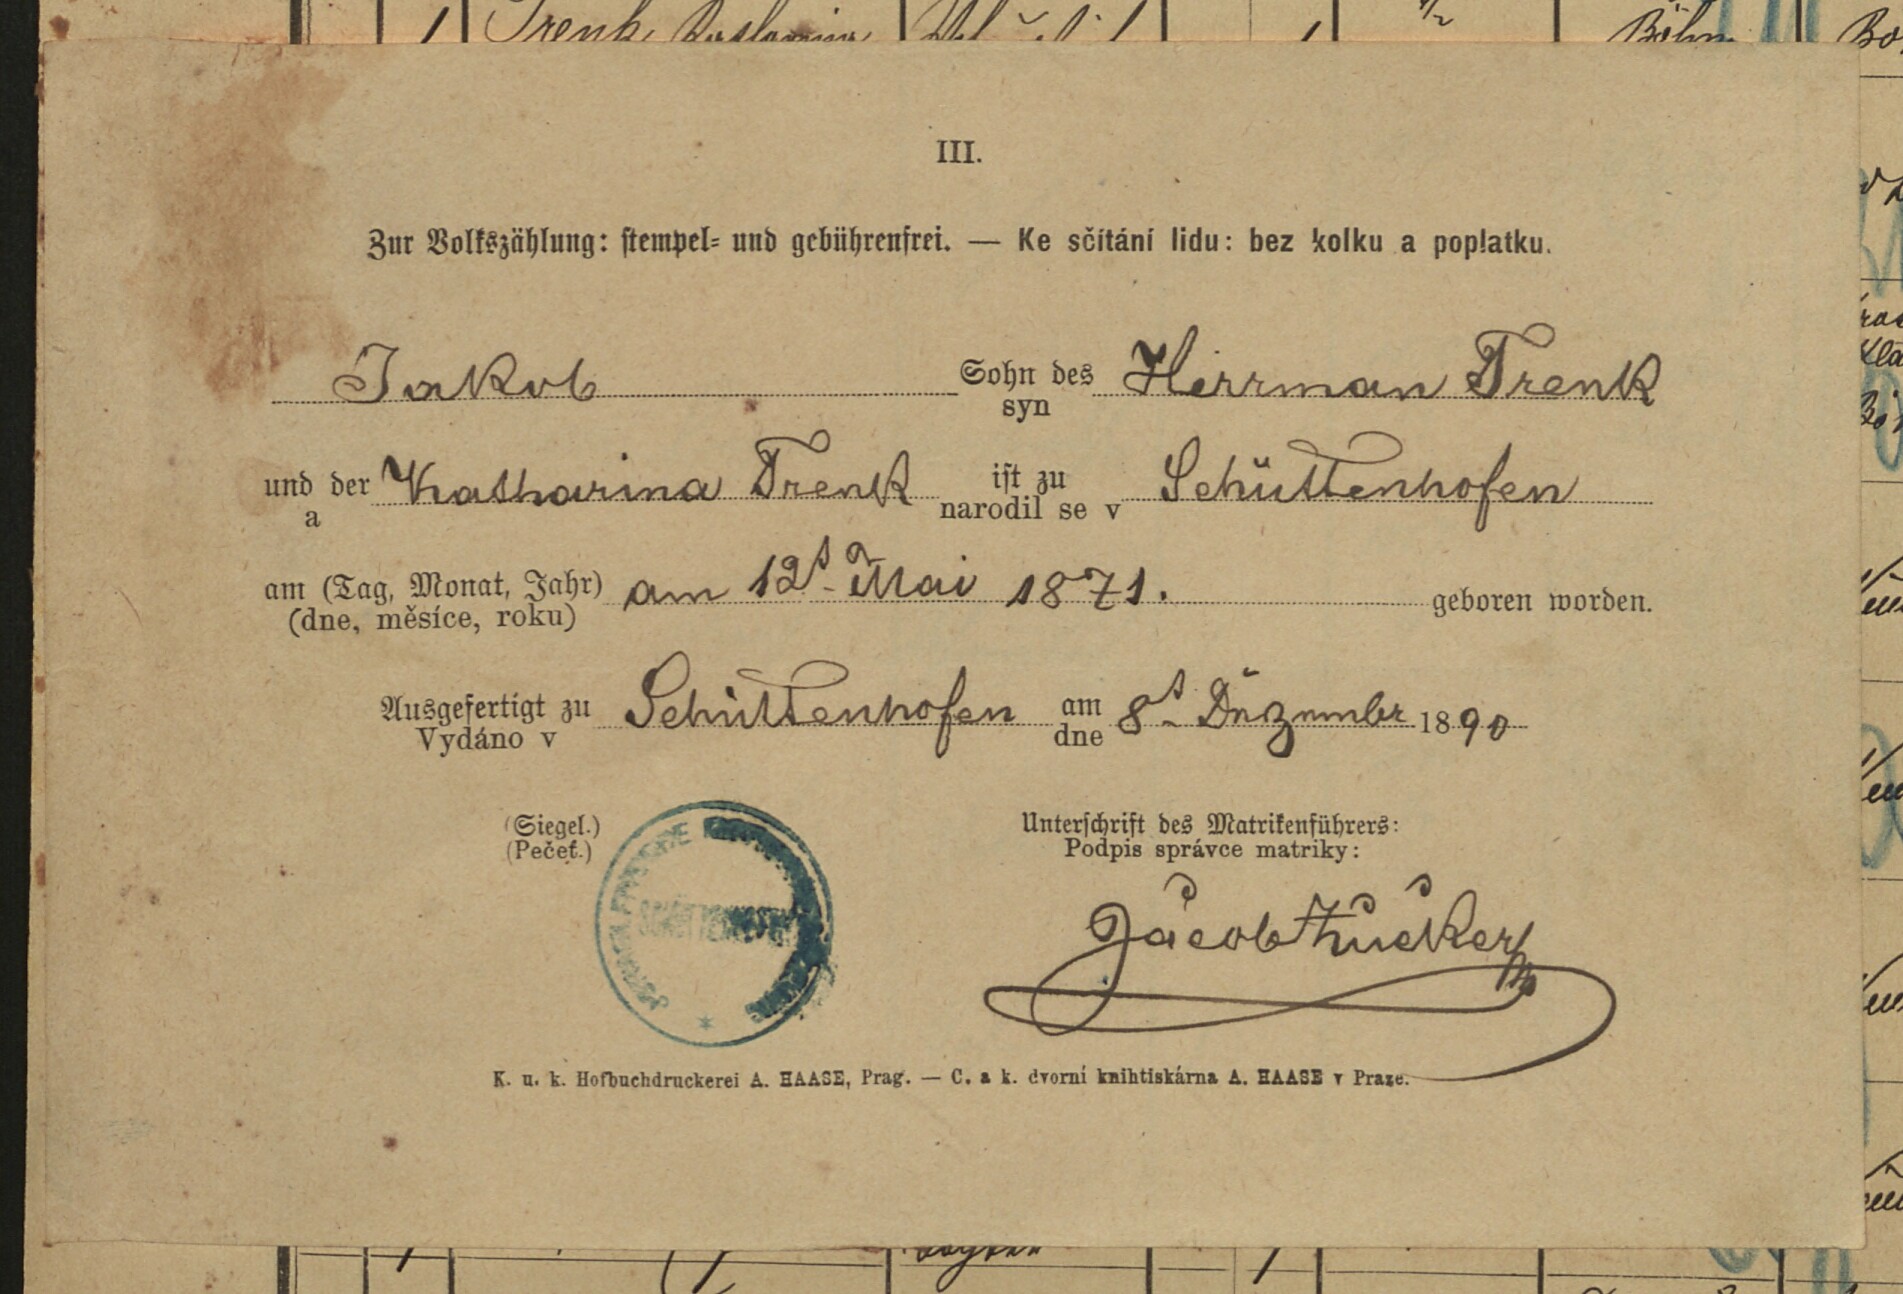 Trenk
Böhm
III.
Zur Volkszählung: stempel- und gebührenfrei. — Ke sčítání lidu: bez kolku a poplatku.
Jakob Sohn des Herrman Trenk
syn
und der Katharina Trenk ist zu Schüttenhofen
a narodil se v
am (Tag, Monat, Jahr) am 12t Mai 1871. geboren worden.
(dne, měsíce, roku)
Ausgefertigt zu Schüttenhofen am 8t Dezember 1890
Vydáno v dne
(Siegel.) Unterschrift des Matrikenführers:
(Pečeť.) Podpis správce matriky:
SCHÜTTENHOFEN
Jacob Zucker
K. u. k. Hofbuchdruckerei A. HAASE, Prag. — C. a k. dvorní knihtiskárna A. HAASE v Praze.